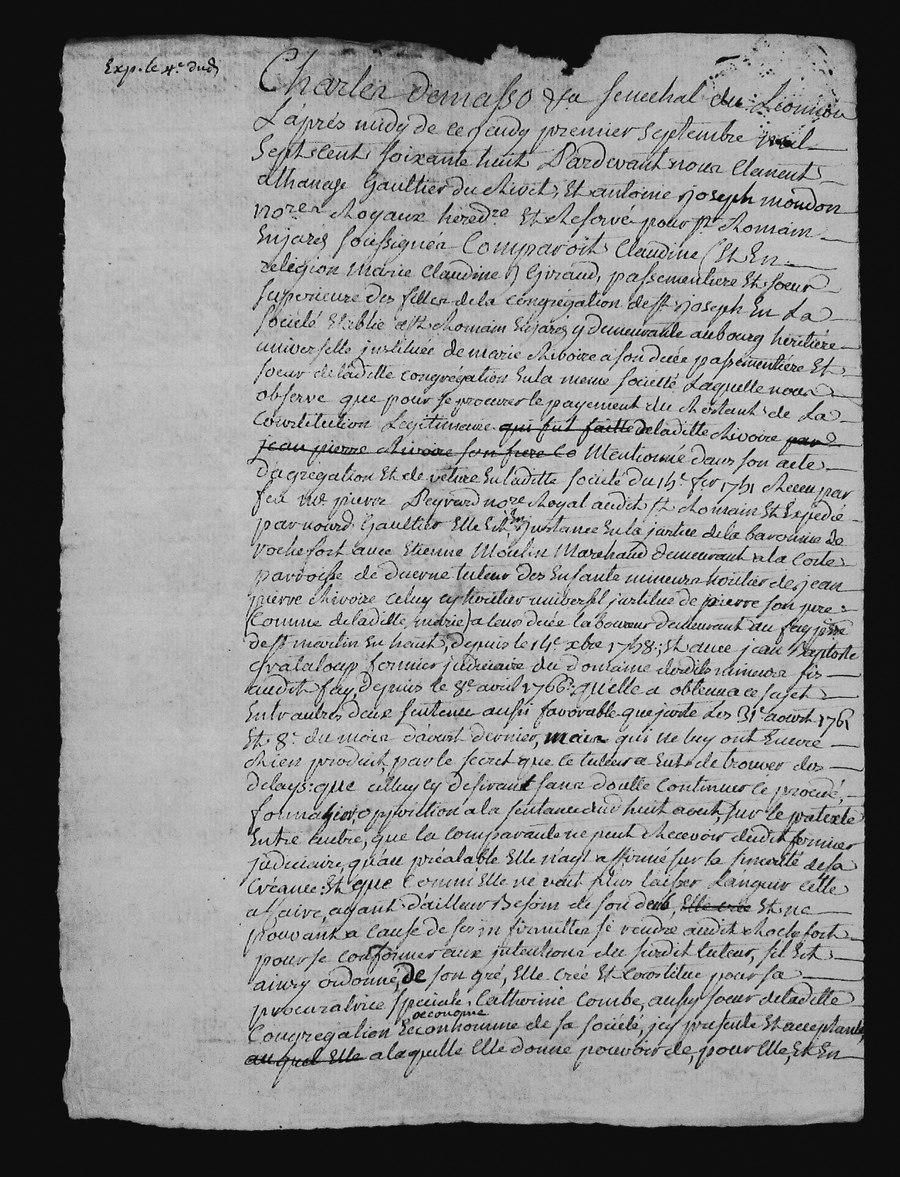 Exp. le 4e dud
Charles demasso &a senechal du Leonnois
L'aprés midy de ce jeudy premier septembre mil
Sept cent soixante huit Pardevant nous Clement
athanase Gaultier du Rivet, Et antoine joseph mondon
nores Royaux heredres Et Reservé pour st Romain
Enjarés soussignés Comparoit Claudine (Et En
religion marie Claudine) Giraud, passementiere Et soeur
superieure des filles de la congrégation de st joseph En La
société Etablie a st Romain Enjarés y demeurante au bourg heritiére
universelle instituée de marie Rivoire a son decée passementiére Et
soeur de laditte congrégation En la meme societté Laquelle nous
observe que pour se procurer le payement du Restant de La
Constitution Legitimaire qui fut faitte de laditte Rivoire par
jean pierre Rivoire son frere Mentionné dans son acte
D'agregation Et de véture En laditte société du 14e fer 1751 Receu par
feu me pierre Peyrard nore Royal audit st Romain Et Expedié
par nousd Gaultier Elle Est en jnstance En la justice de la baronnie de
rochefort avec Etienne Moulin Marchand demeurant a la Coste
parroisse de duerne tuteur des Enfants mineurs heritier de jean
pierre Rivoire celuy cy heritier universel jnstitué de pierre son pere
(Comme de laditte marie) a leur decée laboureur demeurant au fay psse
de st martin En haut, depuis le 14e xbre 1758; Et avec jean Baptiste
fermier judiciaire du domaine desdits mineurs sis
audit fay, depuis le 8e avril 1766: qu'elle a obtenu a ce sujet
Entr'autres deux sentence aussi favorable que juste des 31e aoust 1761
Et 8e du mois d'aoust dernier, mais qui ne luy ont Encore
Rien produit, par le secret que ce tuteur a Eut de trouver des
delays: que celluy cy desirant sans doutte continuer le procué,
forma hier opposition a la sentence dud huit aout, sur le pretexte
Entre autre, que la comparante ne peut Recevoir dudit fermier
judiciaire, qu'au préalable Elle n'ayt affirmé sur la sincerité de sa
Créance: Et que Comme Elle ne veut plus laisser Languir cette
affaire, ayant d'ailleur Besoin de son deub, Elle crée Et ne
pouvant a cause de ses jnfirmittés se rendre audit Rochefort
pour se conformer aux jntentions du susdit tuteur, s'il Est
ainsy ordonné, de son gré, Elle crée Et Constitue pour sa
procuratrice speciale, Catherine Combe, aussy soeur de laditte
oeconome
Congregation Econhomme de sa société, jcy presente Et acceptante,
au quel Elle a laquelle Elle donne pouvoir de, pour Elle, Et En